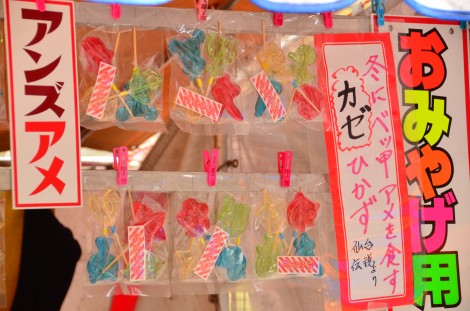 アンズアメ
冬にベッ甲アメを食す
カゼひかず
仙台
伝説より
おみやげ用